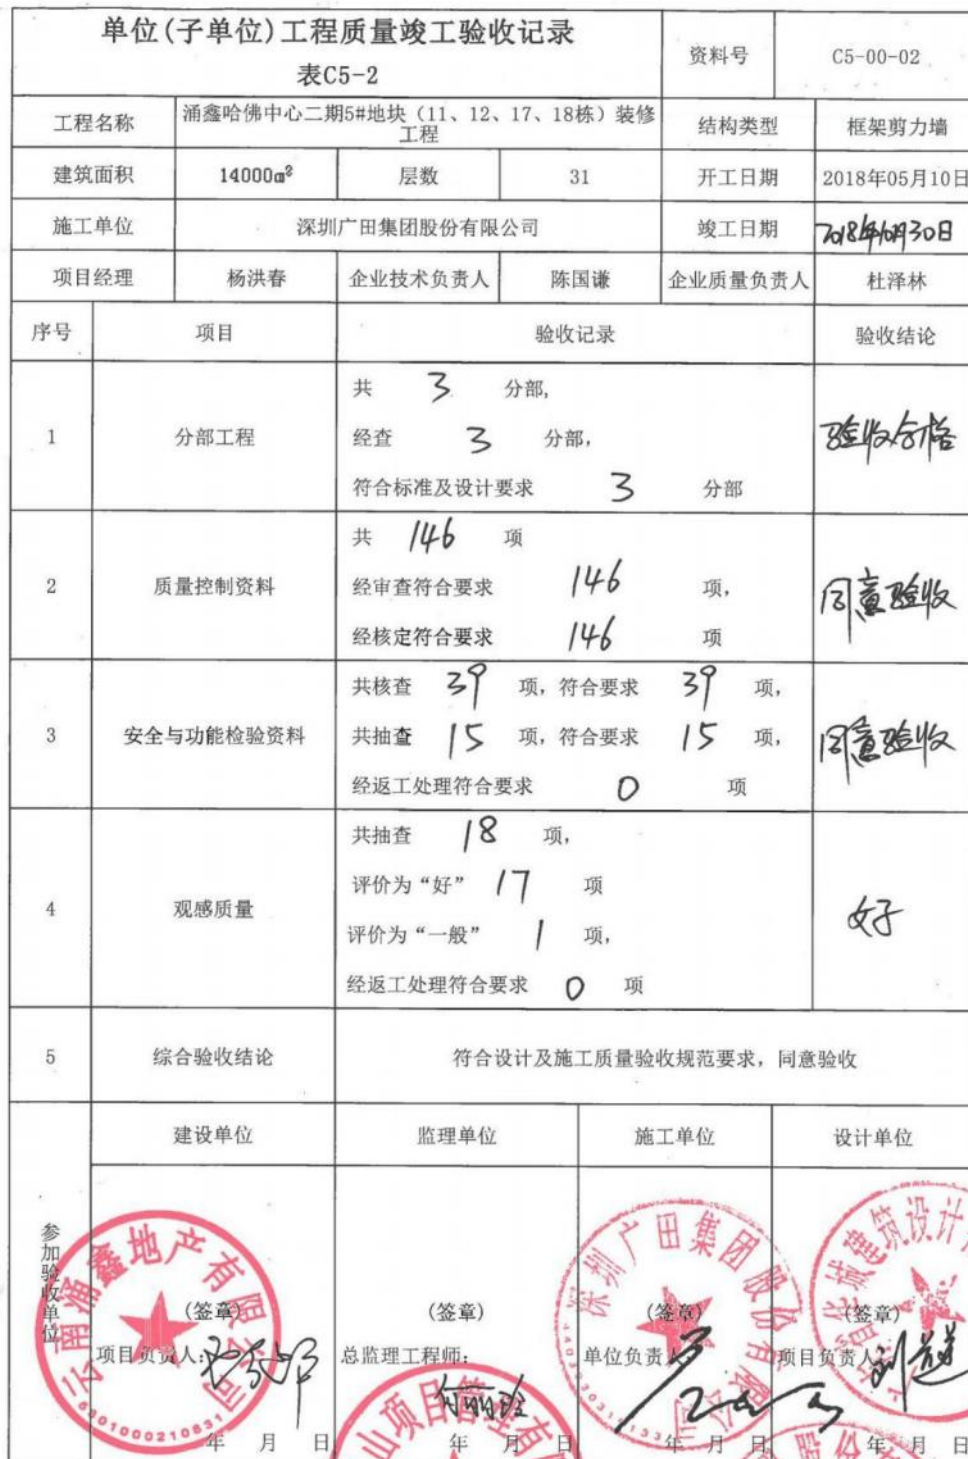 单位(子单位)工程质量竣工验收记录
表C5-2
资料号 C5-00-02
工程名称 涌鑫哈佛中心二期5#地块（11、12、17、18栋）装修工程 结构类型 框架剪力墙
建筑面积 14000m² 层数 31 开工日期 2018年05月10日
施工单位 深圳广田集团股份有限公司 竣工日期 2018年10月30日
项目经理 杨洪春 企业技术负责人 陈国谦 企业质量负责人 杜泽林
序号 项目 验收记录 验收结论
1 分部工程
共 3 分部,
经查 3 分部,
符合标准及设计要求 3 分部
验收合格
2 质量控制资料
共 146 项
经审查符合要求 146 项,
经核定符合要求 146 项
同意验收
3 安全与功能检验资料
共核查 39 项, 符合要求 39 项,
共抽查 15 项, 符合要求 15 项,
经返工处理符合要求 0 项
同意验收
4 观感质量
共抽查 18 项,
评价为“好” 17 项
评价为“一般” 1 项,
经返工处理符合要求 0 项
好
5 综合验收结论 符合设计及施工质量验收规范要求, 同意验收
参加验收单位
建设单位 监理单位 施工单位 设计单位
云南涌鑫地产有限公司
深圳广田集团股份有限公司
建筑设计
(签章) (签章) (签章) (签章)
项目负责人: 总监理工程师: 单位负责人 项目负责人
山项目管理有限
年 月 日 年 月 日 年 月 日 年 月 日